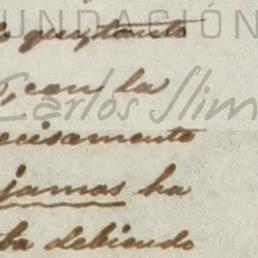 FUNDACIÓN
que, tanto
, con la
Carlos Slim
ecisamente
jamas ha
ba debiendo